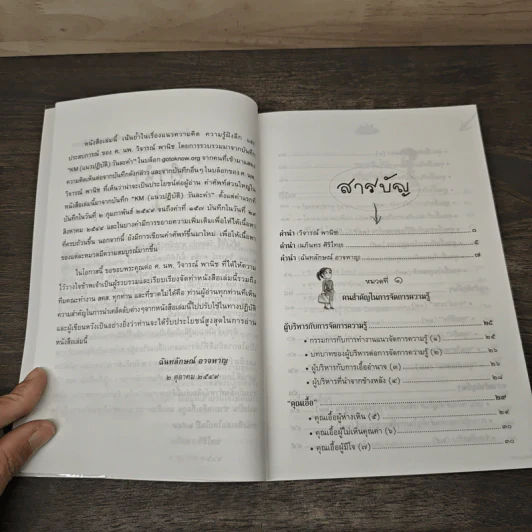 หนังสือเล่มนี้ เน้นย้ำในเรื่องแนวความคิด ความรู้ฝังลึก และ
ประสบการณ์ ของ ศ. นพ. วิจารณ์ พานิช โดยการรวบรวมมาจากบันทึก
"KM (แนวปฏิบัติ) วันละคำ" ในบล็อก gotoknow.org จากคนที่เข้ามาแสดง
ความคิดเห็นต่อจากบันทึกดังกล่าว และจากบันทึกอื่นๆ ในบล็อกของ ศ. นพ.
วิจารณ์ พานิช ที่เห็นว่าน่าจะเป็นประโยชน์ต่อผู้อ่าน คำศัพท์ส่วนใหญ่ใน
หนังสือเล่มนี้มาจากบันทึก "KM (แนวปฏิบัติ) วันละคำ" ตั้งแต่คำแรกที่
บันทึกในวันที่ ๒ กุมภาพันธ์ ๒๕๔๙ จนถึงคำที่ ๑๕๗ บันทึกในวันที่ ๒๙
สิงหาคม ๒๕๔๙ และในบางคำมีการขยายความเพิ่มเติมเพื่อให้ได้เนื้อหา
ที่ครบถ้วนขึ้น นอกจากนี้ ยังมีการเขียนคำศัพท์ขึ้นมาใหม่ เพื่อให้เนื้อหา
ของแต่ละหมวดมีความสมบูรณ์มากขึ้น
ในโอกาสนี้ ขอขอบพระคุณต่อ ศ. นพ. วิจารณ์ พานิช ที่ได้ให้ความ
ไว้วางใจข้าพเจ้าเป็นผู้รวบรวมและเรียบเรียงจัดทำหนังสือเล่มนี้รวมถึง
ทีมคณะทำงาน สคส. ทุกท่าน และที่ขาดไม่ได้คือ ท่านผู้อ่านทุกท่านที่เห็น
ความสำคัญในการนำเคล็ดลับต่างๆจากหนังสือเล่มนี้ไปปรับใช้ในทางปฏิบัติ
และผู้เขียนหวังเป็นอย่างยิ่งว่าท่านจะได้รับประโยชน์สูงสุดในการอ่าน
หนังสือเล่มนี้
ฉันทลักษณ์ อาจหาญ
๒ ตุลาคม ๒๕๔๙
สารบัญ
คำนำ (วิจารณ์ พานิช)
คำนำ (นภินทร ศิริไทย) ๕
คำนำ (ฉันทลักษณ์ อาจหาญ) ๗
หมวดที่ ๑
คนสำคัญในการจัดการความรู้
ผู้บริหารกับการจัดการความรู้ ๒๕
• กรรมการกับการทำงานแนวจัดการความรู้ (๑) ๒๕
• บทบาทของผู้บริหารต่อการจัดการความรู้ (๒) ๒๖
• ผู้บริหารกับการเอื้ออำนาจ (๓) ๒๖
• ผู้บริหารที่นำจากข้างหลัง (๔) ๒๘
"คุณเอื้อ" ๒๙
• คุณเอื้อผู้ห่างเหิน (๕) ๒๙
• คุณเอื้อผู้ไม่เห็นคุณค่า (๖) ๓๐
• คุณเอื้อผู้มีใจ (๗) ๓๐